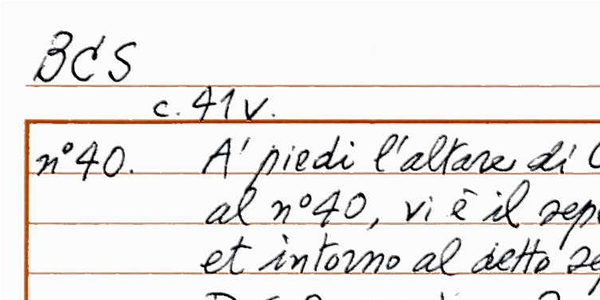 BCS
c. 41v.
n° 40. A' piedi l'altare di
al n° 40, vi è il
et intorno al detto